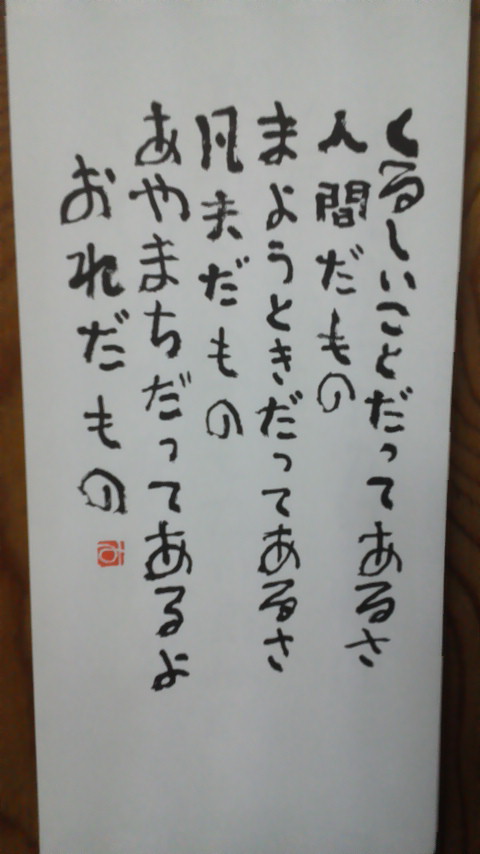 くるしいことだってあるさ
人間だもの
まようときだってあるさ
凡夫だもの
あやまちだってあるよ
おれだもの